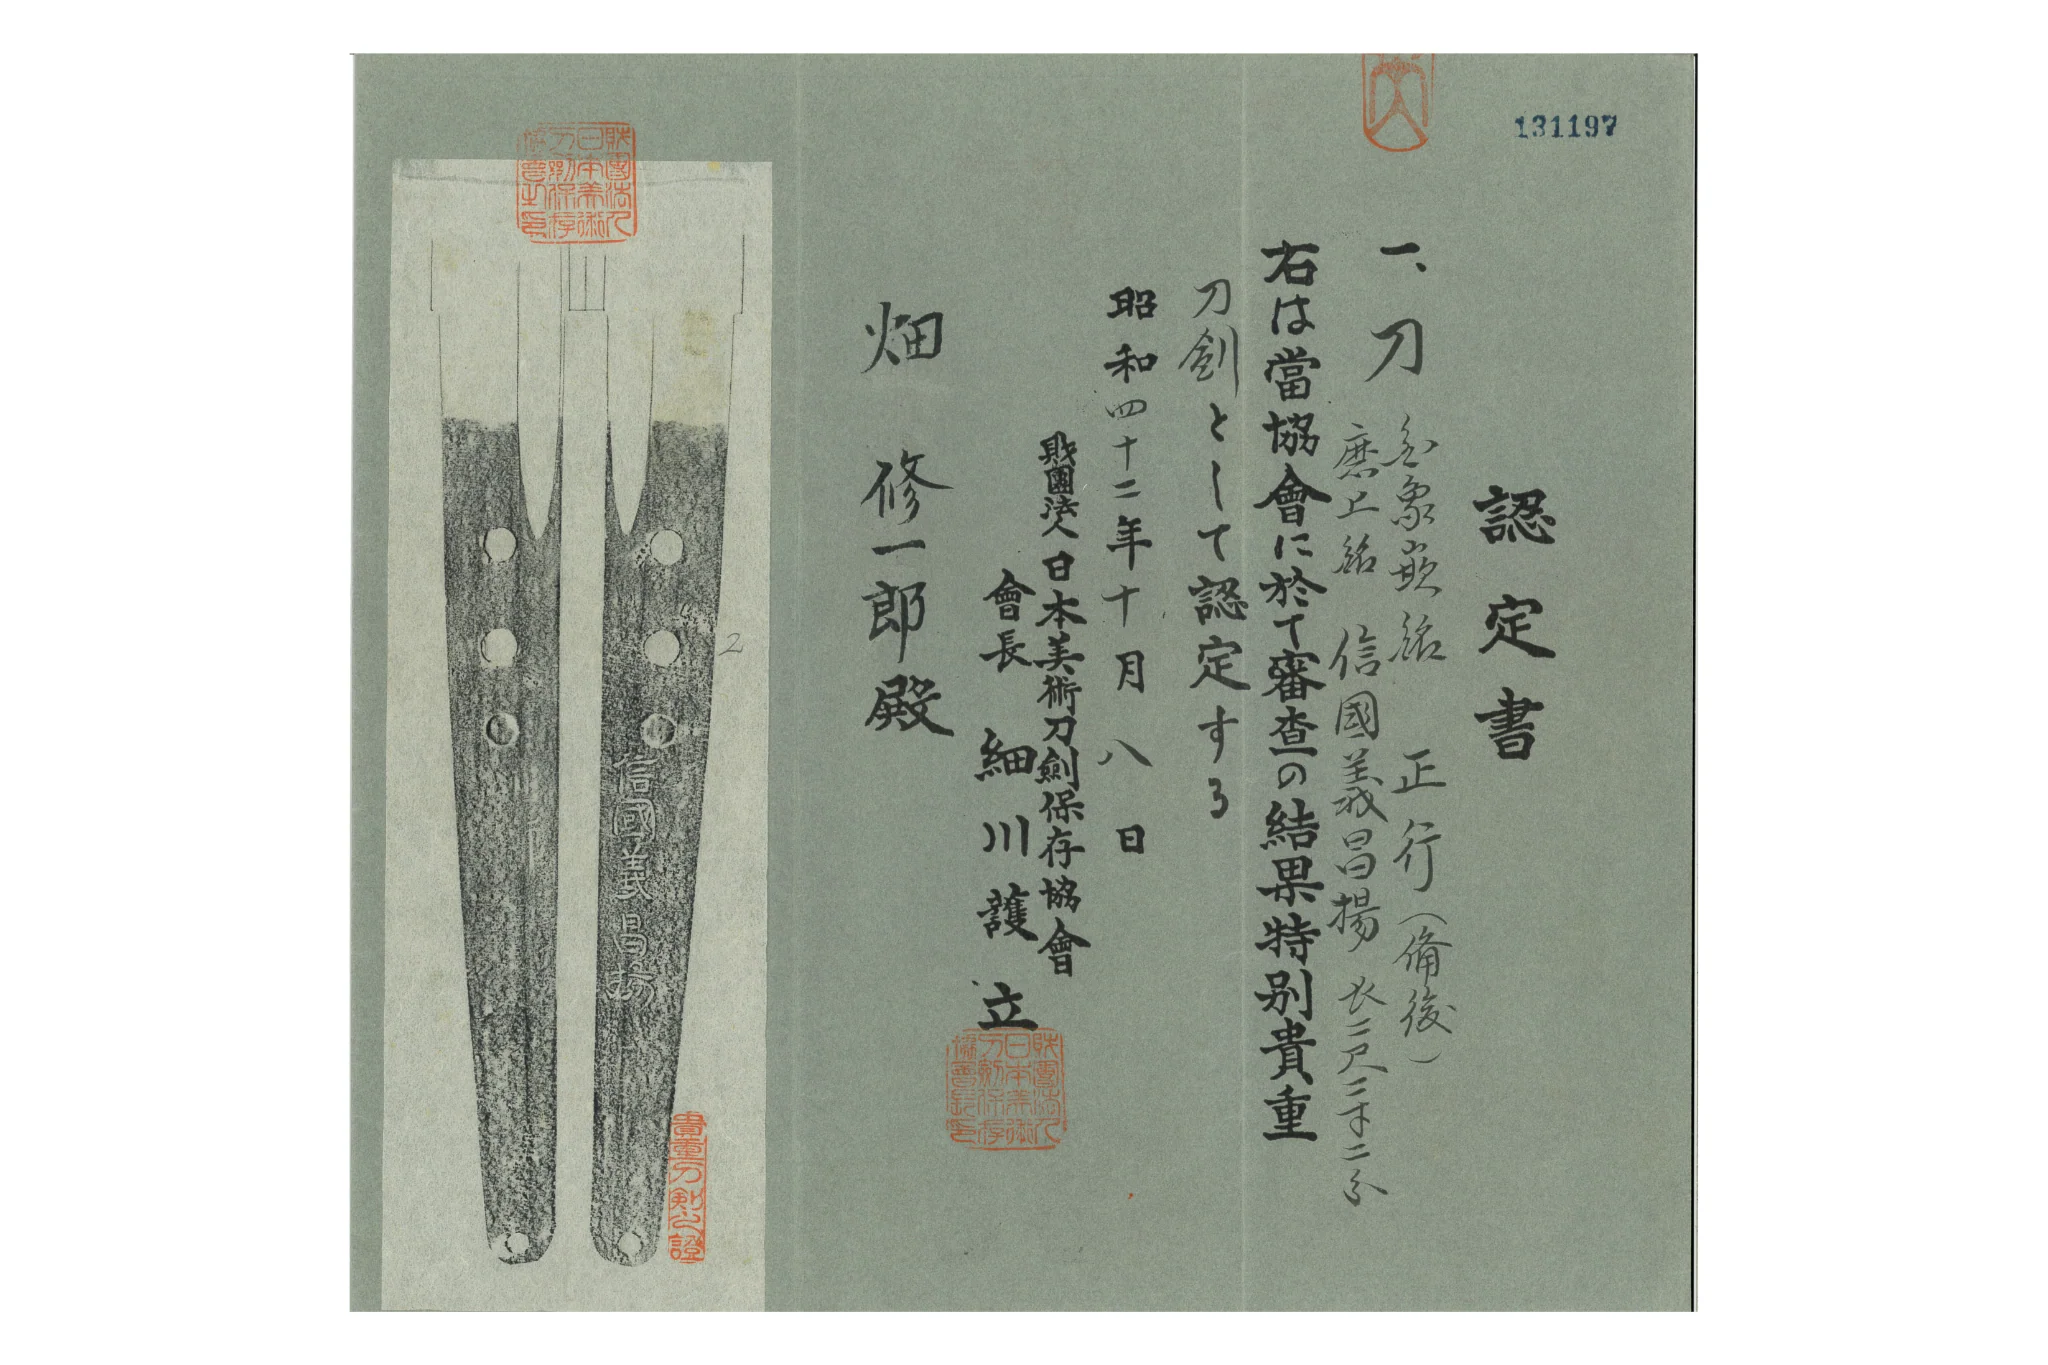 131197
認定書
一、刀 金象嵌銘 正行(備後)
磨上銘 信國義昌揚 長二尺三寸二分
右は當協會に於て審査の結果特別貴重
刀劍として認定する
昭和四十二年十月八日
財團法人日本美術刀劍保存協會
會長 細川護立
畑修一郎殿
財團法人日本美術刀劍保存協會長之印
財團法人日本美術刀劍保存協會之印
信國義昌揚
2
貴重刀剣之證